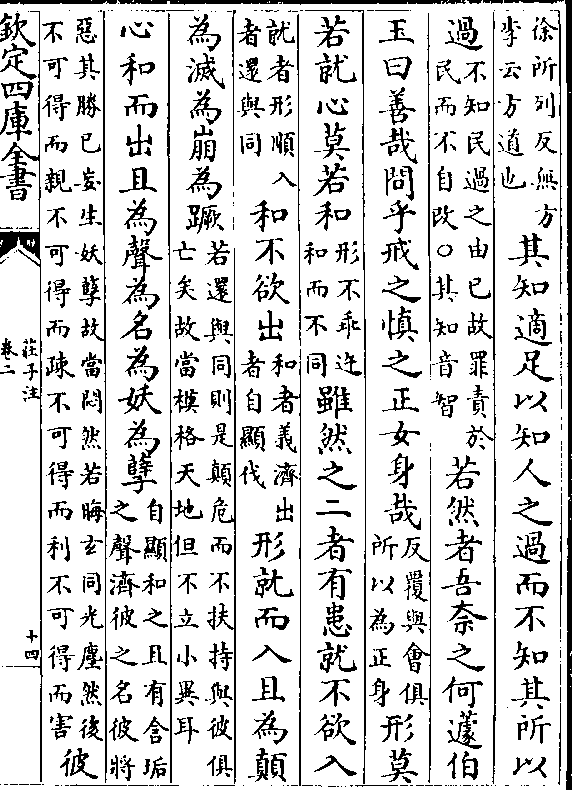 徐所列反無方
李云方道也
其知適足以知人之過而不知其所以
過
不知民過之由已故罪責於
民而不自改○其知音智
若然者吾奈之何蘧伯
玉曰善哉問乎戒之慎之正女身哉
反覆與會俱
所以為正身
形莫
若就心莫若和
形不乖迕
和而不同
雖然之二者有患就不欲入
就者形順入
者還與同
和不欲出
和者義濟出
者自顯伐
形就而入且為顛
為滅為崩為蹶
若還與同則是顛危而不扶持與彼俱
亡矣故當模格天地但不立小異耳
心和而出且為聲為名為妖為孽
自顯和之且有含垢
之聲濟彼之名彼將
惡其勝已妄生妖孽故當悶然若晦玄同光塵然後
不可得而親不可得而疎不可得而利不可得而害
彼
欽定四庫全書
莊子注
卷二
十四